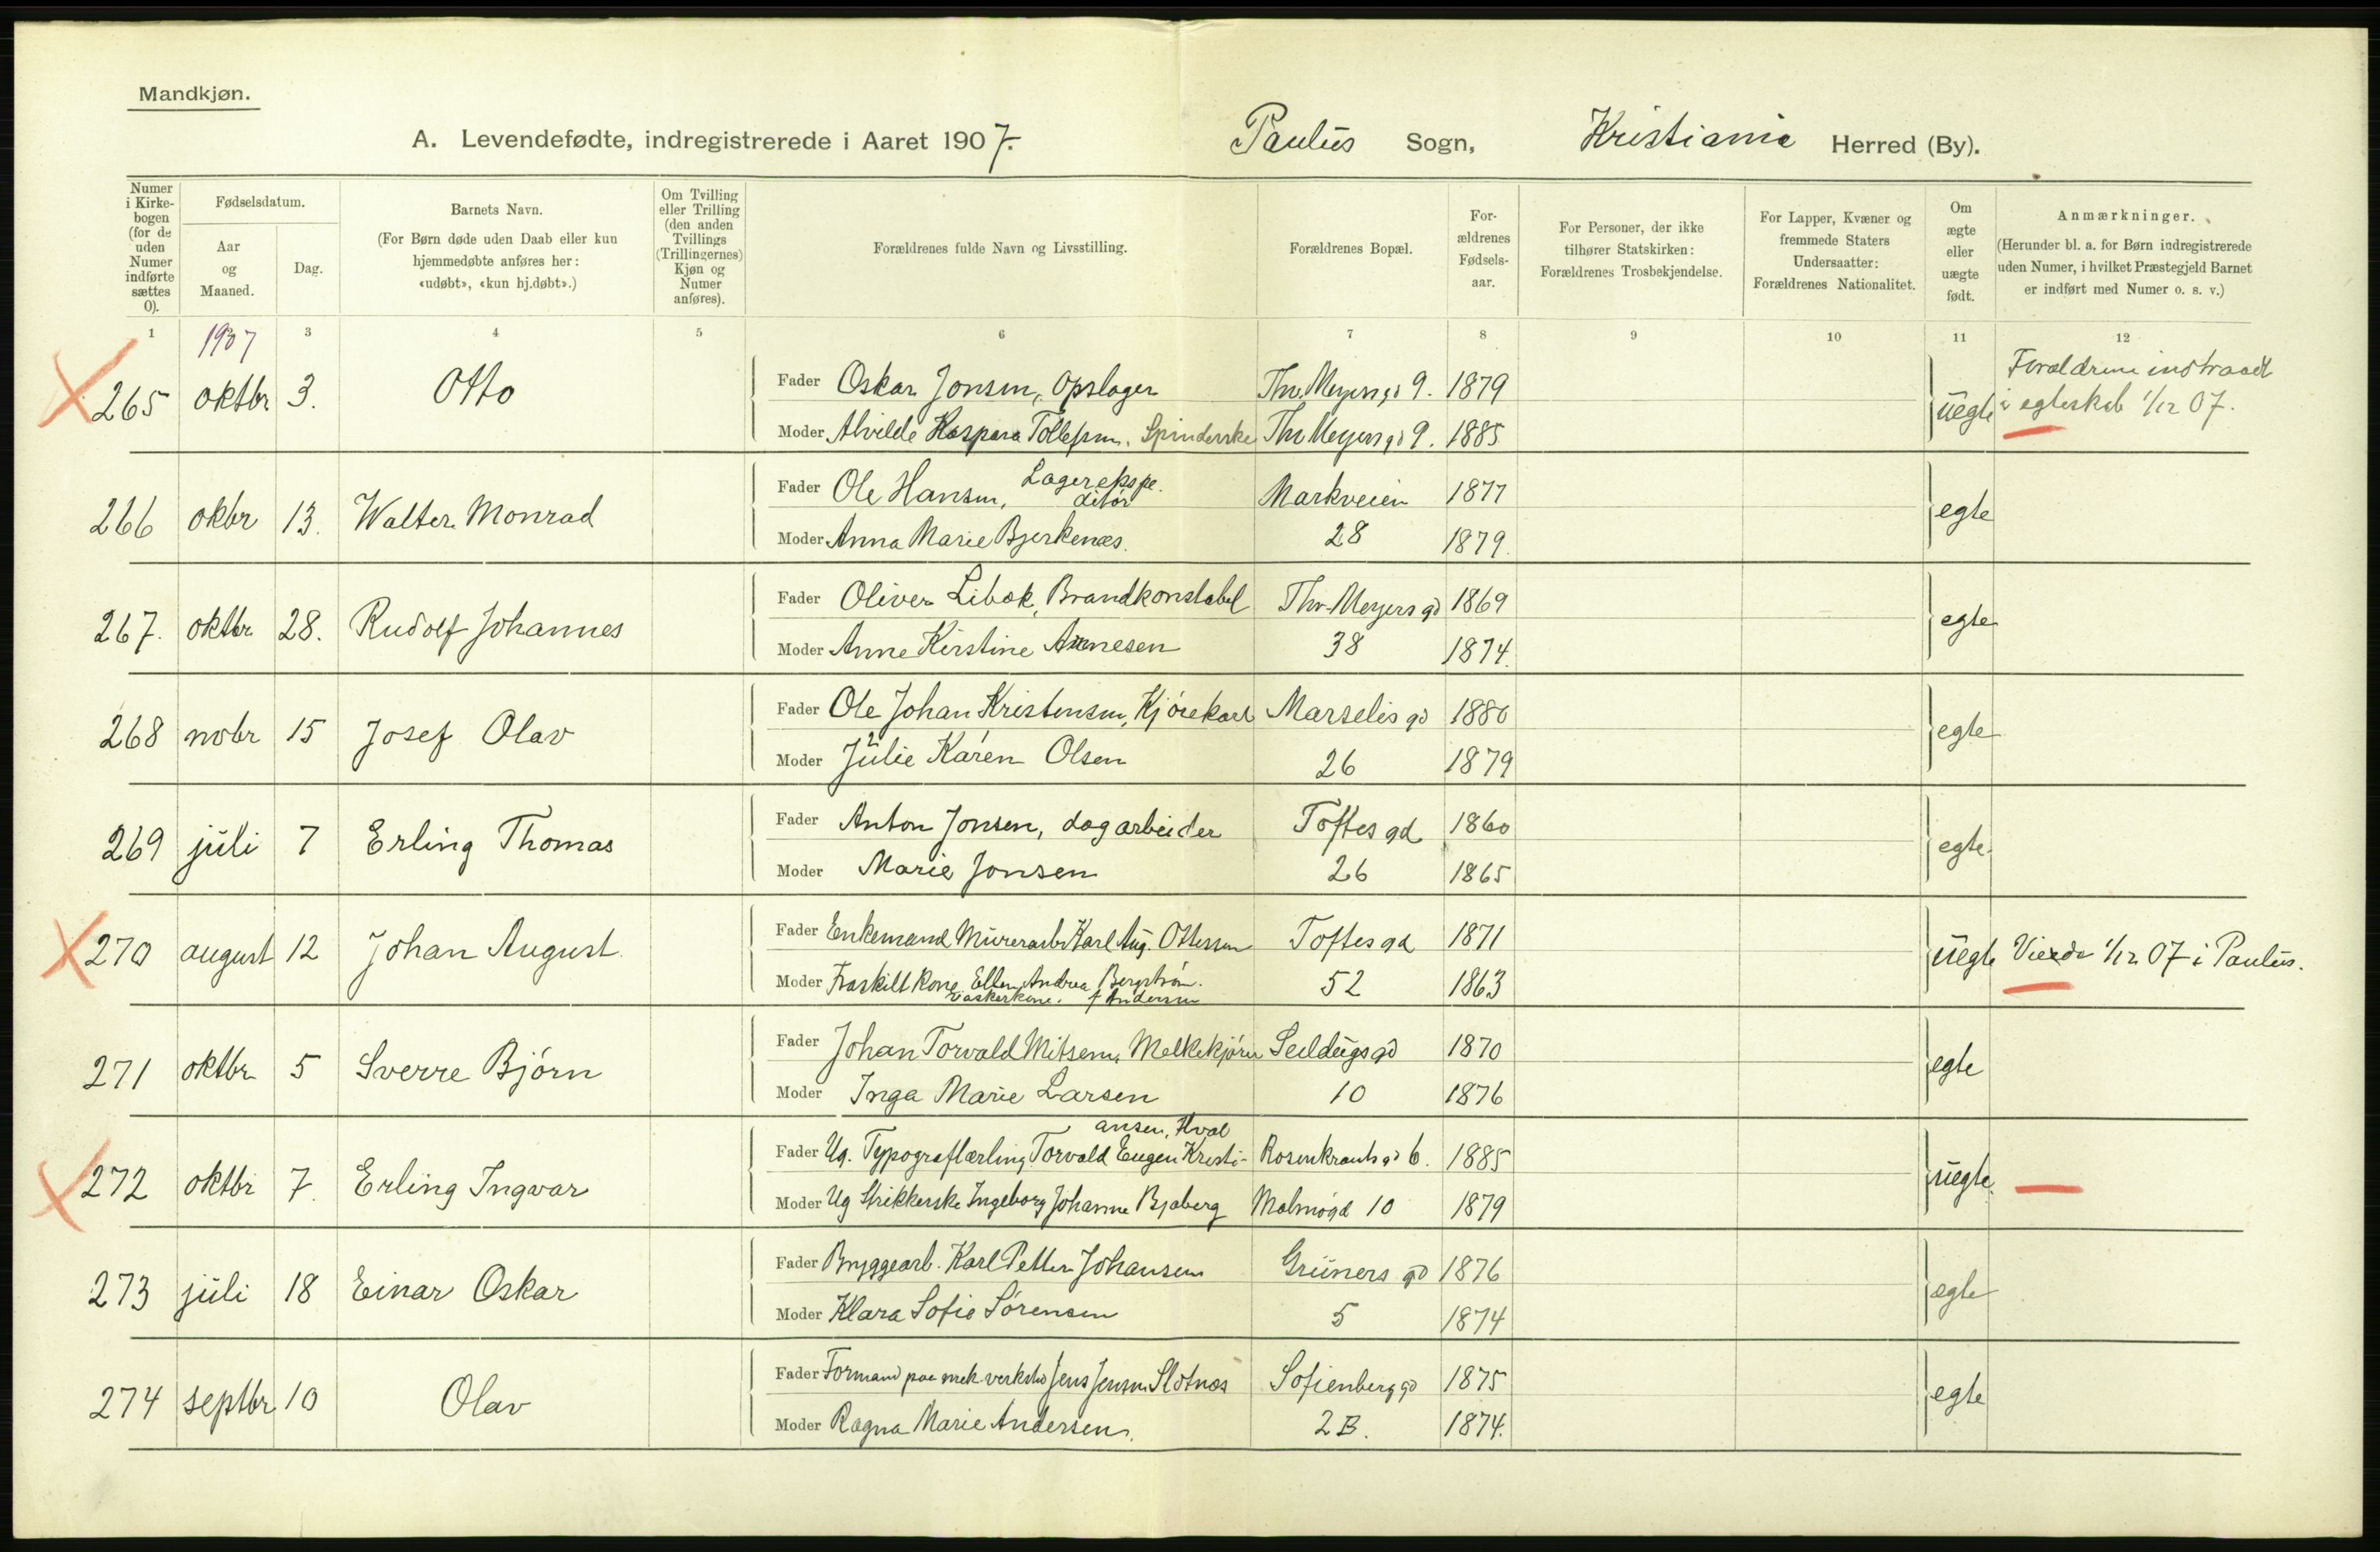 Mandkjøn.
A. Levendefødte, indregistrerede i Aaret 1907. Paulus Sogn, Kristiania Herred (By).
Numer i Kirkebogen (for de uden Numer indførte sættes 0).
Fødselsdatum.
Aar og Maaned.
Dag.
Barnets Navn.
(For Børn døde uden Daab eller kun hjemmedøbte anføres her: «udøbt», «kun hj.døbt».)
Om Tvilling eller Trilling (den anden Tvillings (Trillingernes) Kjøn og Numer anføres).
Forældrenes fulde Navn og Livsstilling.
Forældrenes Bopæl.
Forældrenes Fødselsaar.
For Personer, der ikke tilhører Statskirken: Forældrenes Trosbekjendelse.
For Lapper, Kvæner og fremmede Staters Undersaatter: Forældrenes Nationalitet.
Om ægte eller uægte født.
Anmærkninger.
(Herunder bl. a. for Børn indregistrerede uden Numer, i hvilket Præstegjeld Barnet er indført med Numer o. s. v.)
1 3 4 5 6 7 8 9 10 11 12
1907
265 oktbr 3. Otto
Fader Oskar Jonsen, Opslager Thv. Meyers gd 9. 1879
Moder Alvilde Kaspara Tollefsen, Spinderske Thv Meyers gd 9. 1885
uegte Forældrene indtraadt
i egteskab 1/12 07.
266 okbr 13. Walter Monrad
Fader Ole Hansen, Lagerekspeditör Markveien 1877
Moder Anna Marie Bjerkenæs. 28 1879.
egte
267. oktbr 28. Rudolf Johannes
Fader Oliver Libæk, Brandkonstabel Thv-Meyers gd 1869
Moder Anne Kirstine Annesen 38 1874.
egte
268 nvbr 15 Josef Olav
Fader Ole Johan Kristensen, Kjörekarl Marselis gd 1880
Moder Julie Karen Olsen 26 1879
egte
269 juli 7 Erling Thomas
Fader Anton Jonsen, dagarbeider Toftes gd 1860
Moder Marie Jonsen 26 1865
egte
270 august 12 Johan August
Fader Enkemand Murerarb. Karl Aug. Ottessen Toftes gd 1871
Moder Fraskilt kone Ellen Andrea Bergström. 52 1863
vaskerkone. f Andersen
uegte Viede 1/12 07 i Paulus.
271 oktbr 5 Sverre Björn
Fader Johan Torvald Mitsem, Melkekjörer Seildugs gd 1870
Moder Inga Marie Larsen 10 1876
egte
272 oktbr 7. Erling Ingvar
ansen, Hval
Fader Ug. Typograflærling Torvald Eugen Kristi- Rosenkrants gd 6. 1885
Moder Ug Strikkerske Ingeborg Johanne Bjaberg Malmögd 10 1879
uegte.
273 juli 18 Einar Oskar
Fader Bryggearb. Karl Petter Johansen Grüners gd 1876
Moder Klara Sofie Sörensen 5 1874
ægte
274 septbr 10 Olav
Fader Formand paa mek verksted Jens Jensen Slotnæs Sofienberg gd 1875
Moder Ragna Marie Andersen. 2 B. 1874.
egte